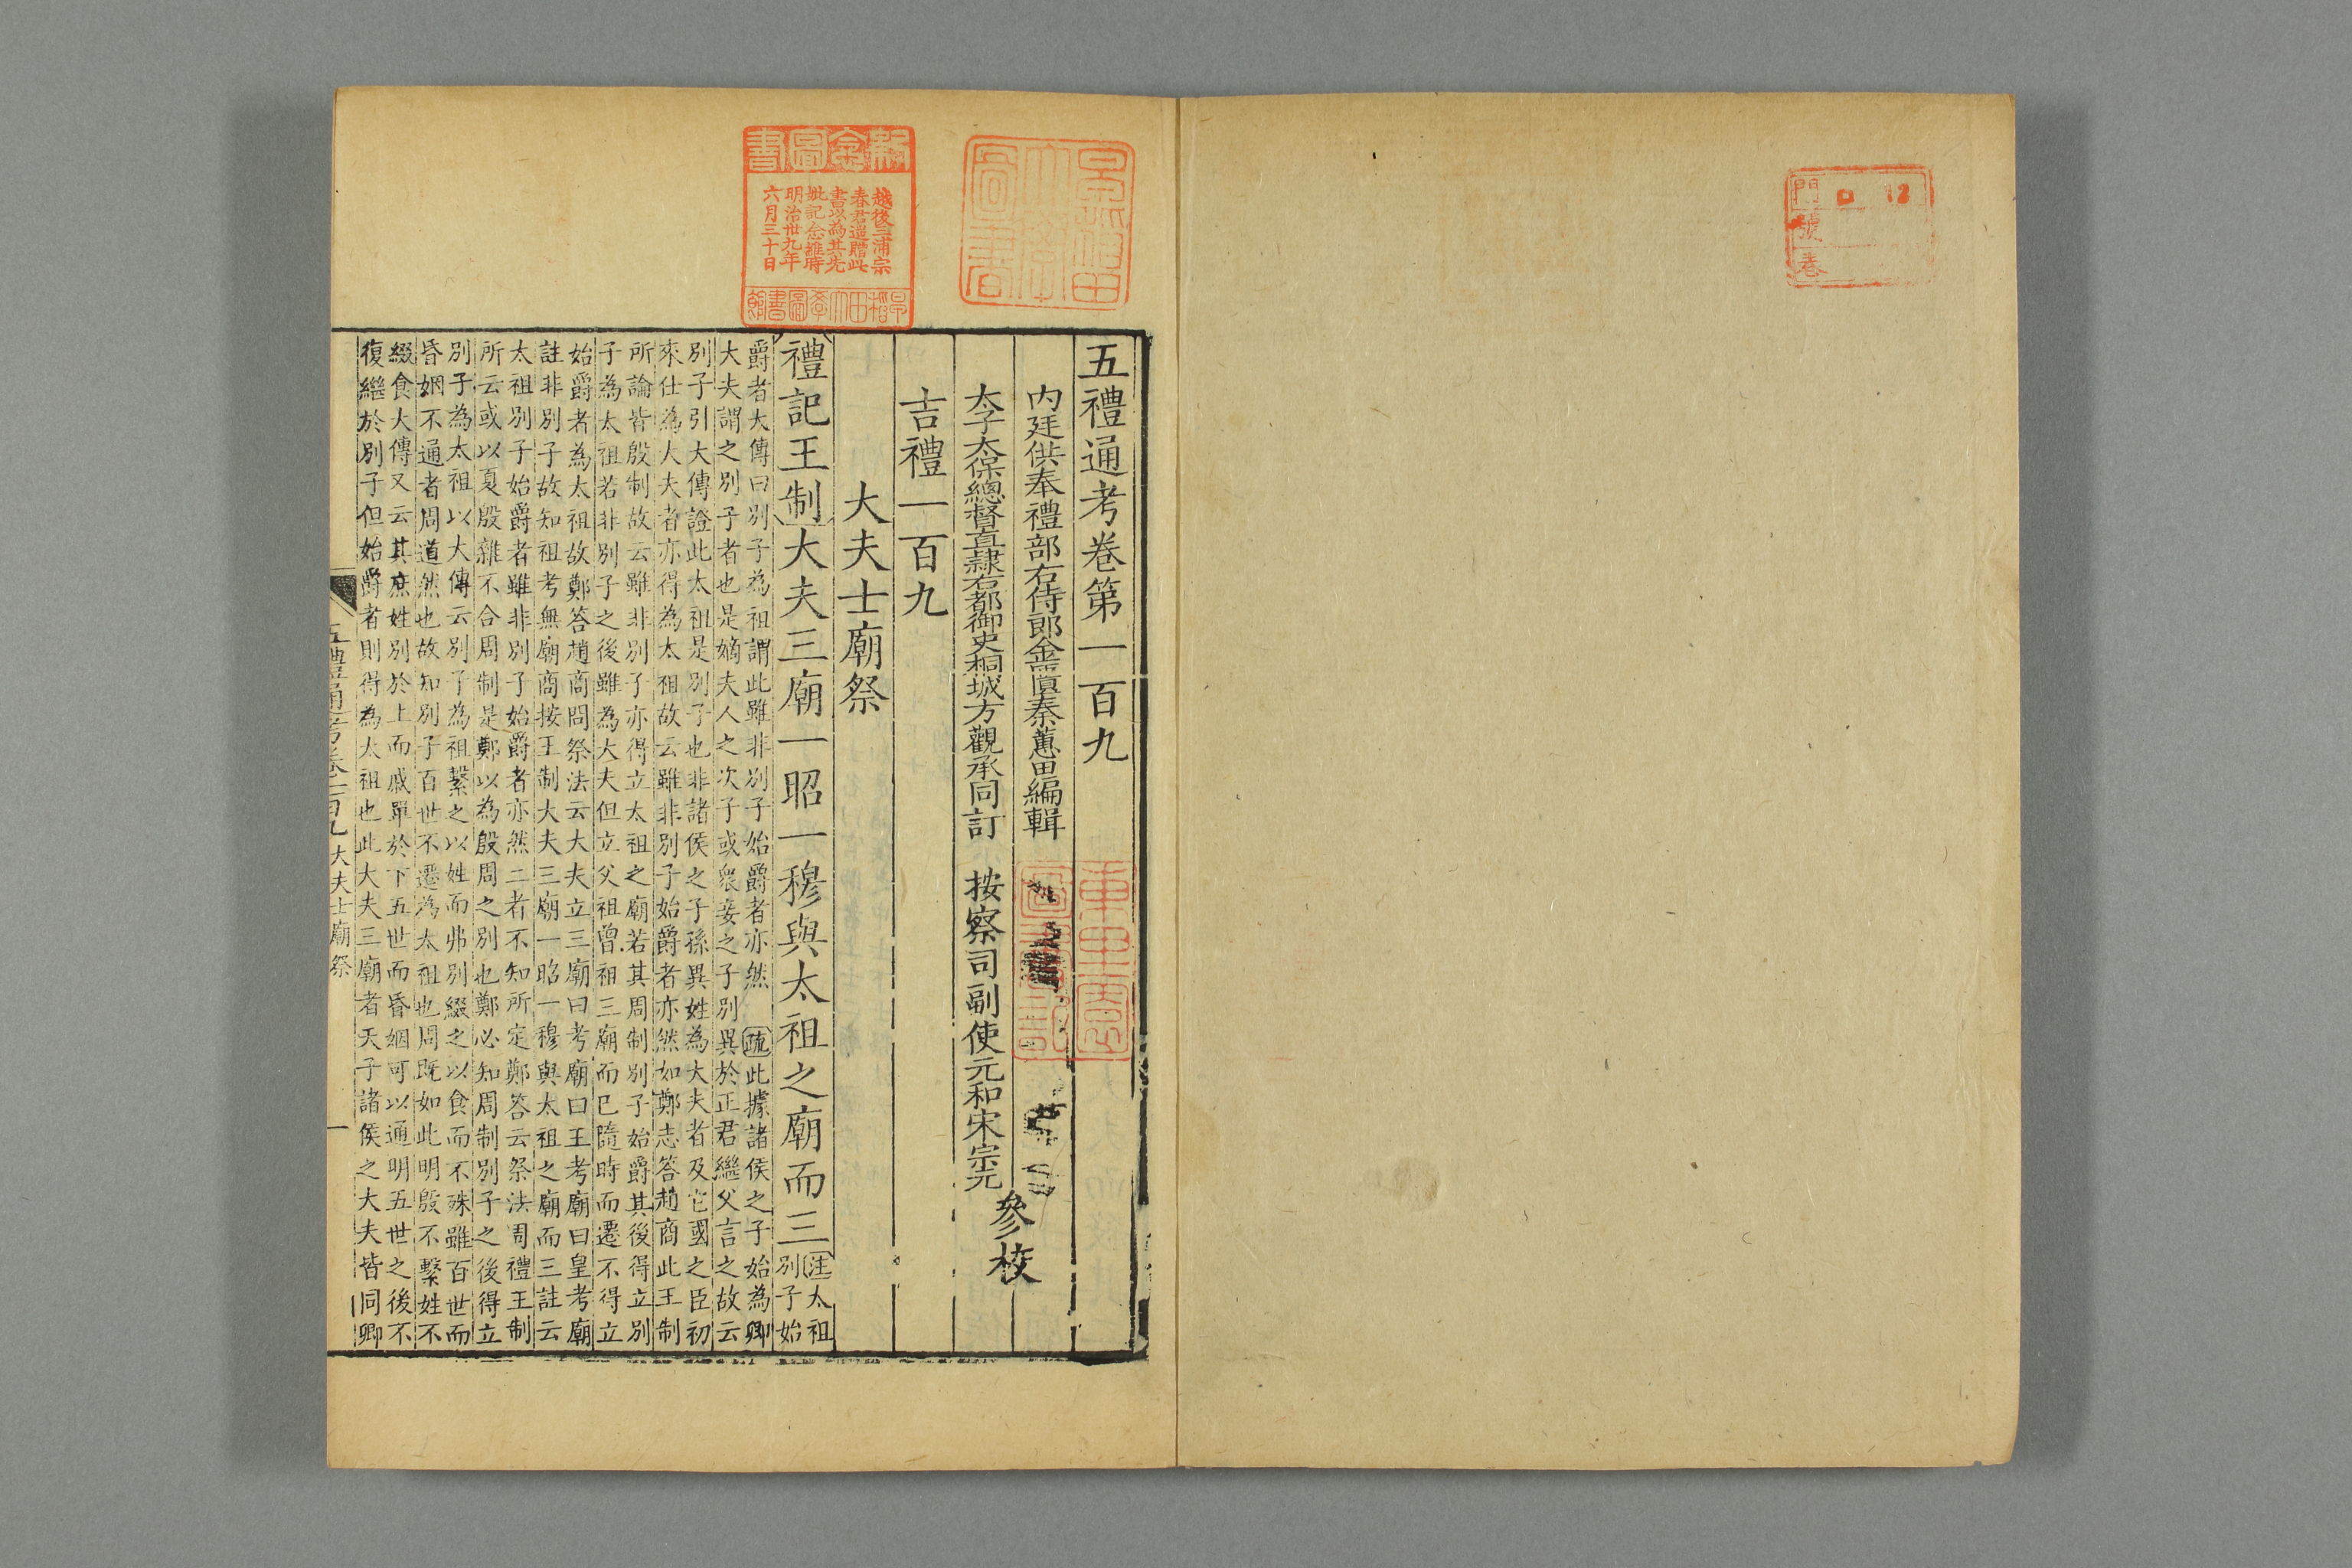 門
號
卷
12
早稻田大學圖書
新念圖書
越後三浦宗
春君遥贈此
書以為其先
妣記念維時
明治卅九年
六月三十日
早稻田大學圖書館
五禮通考卷第一百九
內廷供奉禮部右侍郎金匱秦蕙田編輯
太子太保總督直隸右都御史桐城方觀承同訂 按察司副使元和宋宗元
參校
吉禮一百九
大夫士廟祭
禮記王制大夫三廟一昭一穆與太祖之廟而三注太祖
別子始
爵者大傳曰別子為祖謂此雖非別子始爵者亦然 疏此據諸侯之子始為卿
大夫謂之別子者也是嫡夫人之次子或衆妾之子別異於正君繼父言之故云
別子引大傳證此太祖是別子也非諸侯之子孫異姓為大夫者及它國之臣初
來仕為大夫者亦得為太祖故云雖非別子始爵者亦然如鄭志答趙商此王制
所論皆殷制故云雖非別子亦得立太祖之廟若其周制別子始爵其後得立別
子為太祖若非別子之後雖為大夫但立父祖曾祖三廟而已隨時而遷不得立
始爵者為太祖故鄭答趙商問祭法云大夫立三廟曰考廟曰王考廟曰皇考廟
註非別子故知祖考無廟商按王制大夫三廟一昭一穆與太祖之廟而三註云
太祖別子始爵者雖非別子始爵者亦然二者不知所定鄭答云祭法周禮王制
所云或以夏殷雜不合周制是鄭以為殷周之別也鄭必知周制別子之後得立
別子為太祖以大傳云別子為祖繫之以姓而弗別綴之以食而不殊雖百世而
昏姻不通者周道然也故知別子百世不遷為太祖也周既如此明殷不繫姓不
綴食大傳又云其庶姓別於上而戚單於下五世而昏姻可以通明五世之後不
復繼於別子但始爵者則得為太祖也此大夫三廟者天子諸侯之大夫皆同卿
五禮通考卷一百九 大夫士廟祭 一